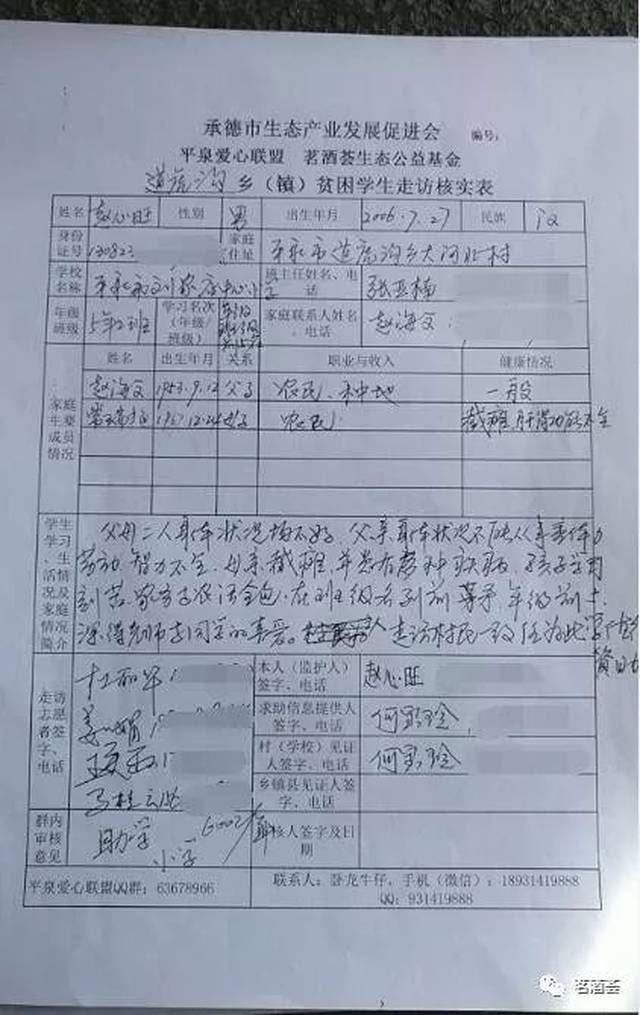 承德市生态产业发展促进会 编号:
平泉爱心联盟 茗酒荟生态公益基金
道虎沟乡（镇）贫困学生走访核实表
姓名 赵心旺 性别 男 出生年月 2006.7.27 民族 汉
身份证号 130823 家庭住址 平泉市道虎沟乡大河北村
学校名称 平泉市刘家店中心小学 班主任姓名、电话 张亚楠
年级班级 5年2班 学习名次（年级/班级） 家庭联系人姓名、电话 赵海文
家庭主要成员情况 姓名 出生年月 关系 职业与收入 健康情况
赵海文 1953.9.12 父子 农民、种地 一般
1967.12.24 母子 农民 截瘫,肝肾功能不全
学生学习、生活情况及家庭情况简介
父母二人身体状况均不好，父亲身体状况不能从事重体力
劳动，智力不全，母亲截瘫，并患有多种疾病，孩子学习
刻苦，家务农活全包，在班级名列前茅，年级前十，
深得老师与同学的喜爱。走访村民一致认为此学生应
资助
走访志愿者签字、电话
本人（监护人）签字、电话 赵心旺
求助信息提供人签字、电话
村（学校）见证人签字、电话
乡镇县见证人签字、电话
群内审核意见 助学 小学 600元/年 审核人签字及日期
平泉爱心联盟QQ群：63678966 联系人：卧龙牛仔，手机（微信）：18931419888
QQ：931419888
茗酒荟